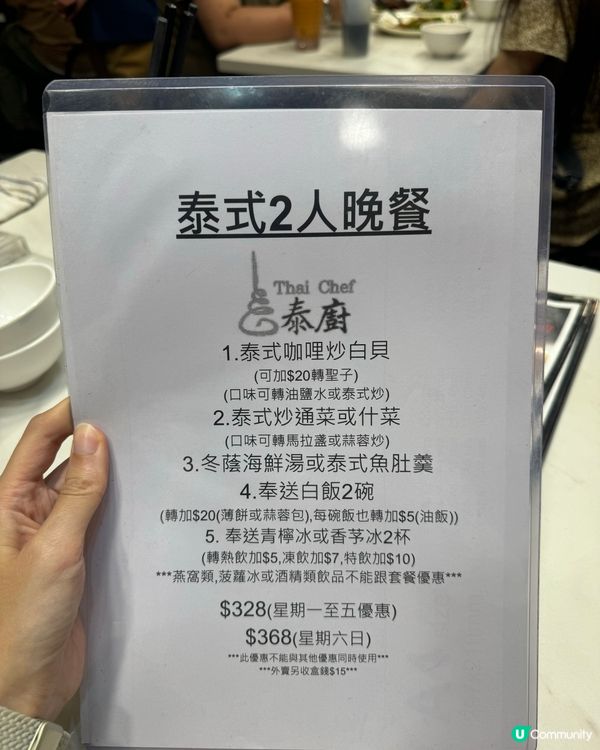 泰式2人晚餐
Thai Chef
泰廚
1.泰式咖哩炒白貝
(可加$20轉聖子)
(口味可轉油鹽水或泰式炒)
2.泰式炒通菜或什菜
(口味可轉馬拉盞或蒜蓉炒)
3.冬蔭海鮮湯或泰式魚肚羹
4.奉送白飯2碗
(轉加$20(薄餅或蒜蓉包),每碗飯也轉加$5(油飯))
5. 奉送青檸冰或香茅冰2杯
(轉熱飲加$5,凍飲加$7,特飲加$10)
***燕窩類,菠蘿冰或酒精類飲品不能跟套餐優惠***
$328(星期一至五優惠)
$368(星期六日)
***此優惠不能與其他優惠同時使用***
***外賣另收盒錢$15***
U Community